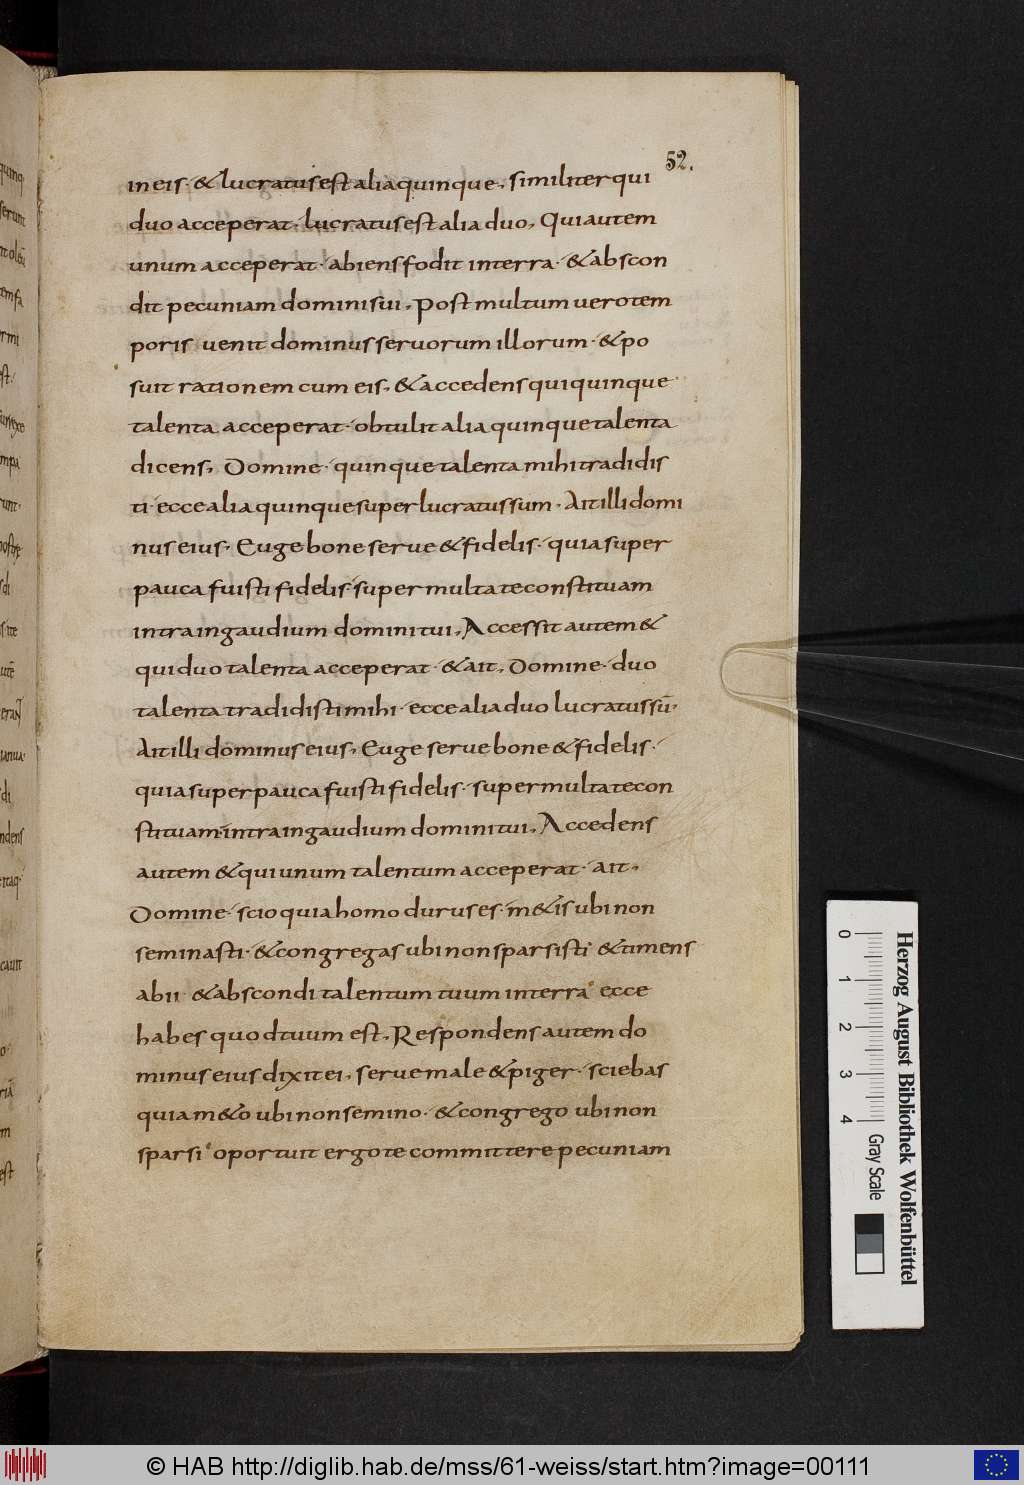 52.
in eis · & lucratus est alia quinque, similiter qui
duo acceperat · lucratus est alia duo, Qui autem
unum acceperat · abiens fodit in terra · & abscon
dit pecuniam domini sui, Post multum uero tem
poris uenit dominus seruorum illorum · & po
suit rationem cum eis, & accedens qui quinque
talenta acceperat · obtulit alia quinque talenta
dicens, Domine · quinque talenta mihi tradidis
ti · ecce alia quinque super lucratus sum · Ait illi domi
nus eius, Euge bone serue & fidelis · quia super
pauca fuisti fidelis · super multa te constituam
intra in gaudium domini tui, Accessit autem &
qui duo talenta acceperat · & ait, Domine · duo
talenta tradidisti mihi · ecce alia duo lucratus sū ·
Ait illi dominus eius, Euge serue bone & fidelis ·
quia super pauca fuisti fidelis · super multa te con
stituam · intra in gaudium domini tui, Accedens
autem & qui unum talentum acceperat · ait,
Domine · scio quia homo durus es · m&is ubi non
seminasti · & congregas ubi non sparsisti · & timens
abii · & abscondi talentum tuum in terra · ecce
habes quod tuum est, Respondens autem do
minus eius dixit ei, serue male & piger · sciebas
quia m&o ubi non semino · & congrego ubi non
sparsi · oportuit ergo te committere pecuniam
0 1 2 3 4
Gray Scale
Herzog August Bibliothek Wolfenbüttel
© HAB http://diglib.hab.de/mss/61-weiss/start.htm?image=00111